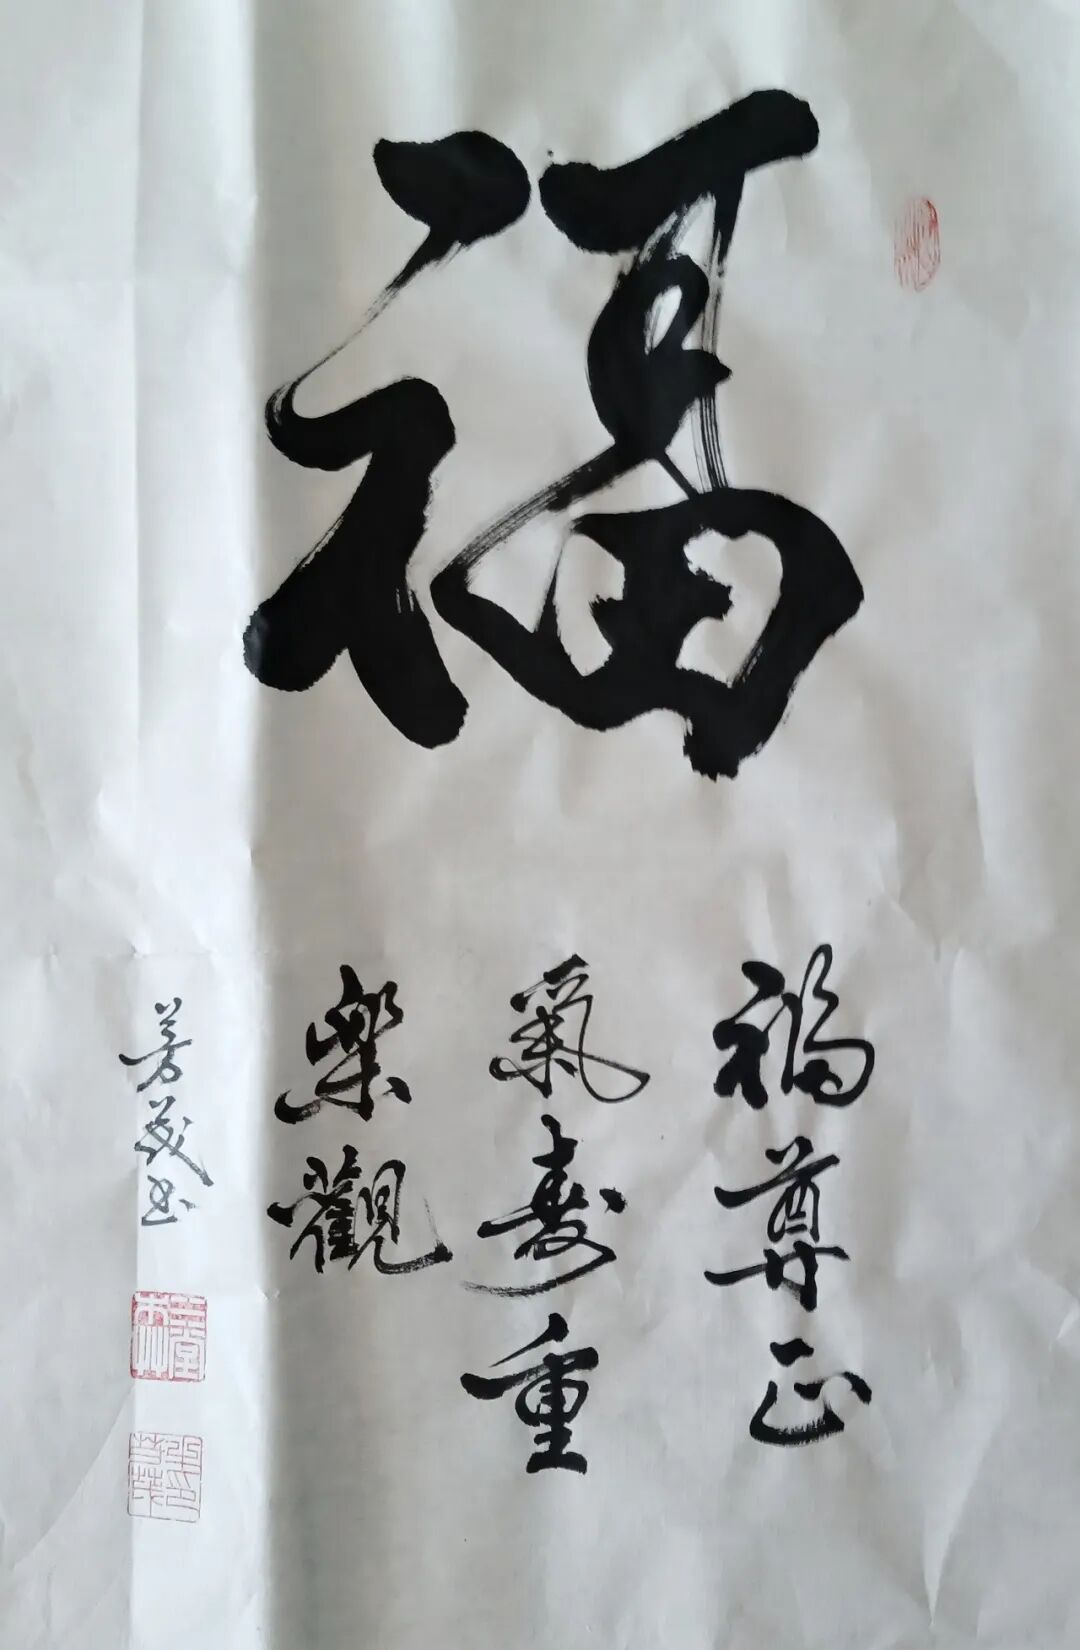 福
福尊正
氣壽重
樂觀
芳義书